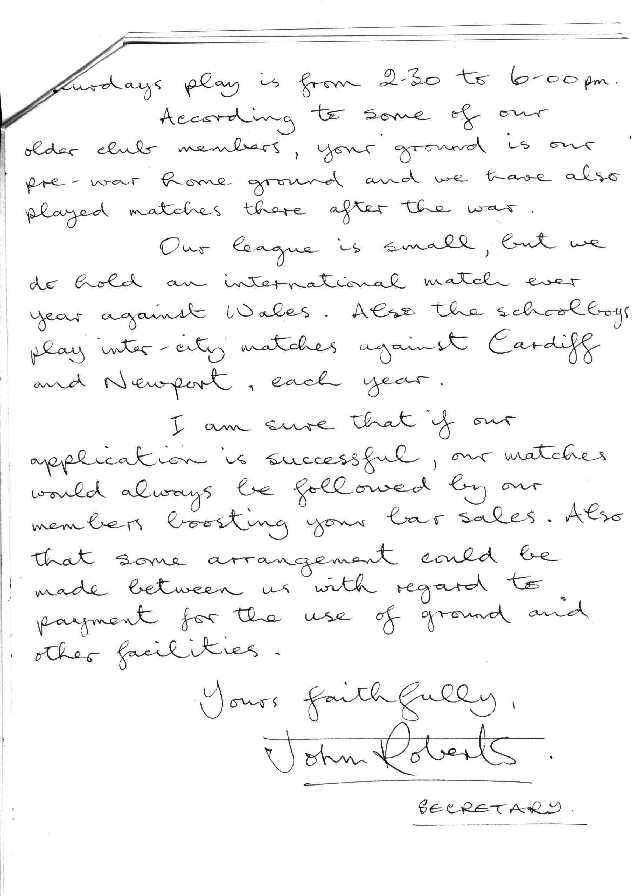 urdays play is from 2-30 to 6-00pm.
According to some of our
older club members, your ground is our
pre-war home ground and we have also
played matches there after the war.
Our league is small, but we
do hold an international match ever
year against Wales. Also the schoolboys
play inter-city matches against Cardiff
and Newport, each year.
I am sure that if our
application is successful, our matches
would always be followed by our
members boosting your bar sales. Also
that some arrangement could be
made between us with regard to
payment for the use of ground and
other facilities.
Yours faithfully,
John Roberts.
SECRETARY.